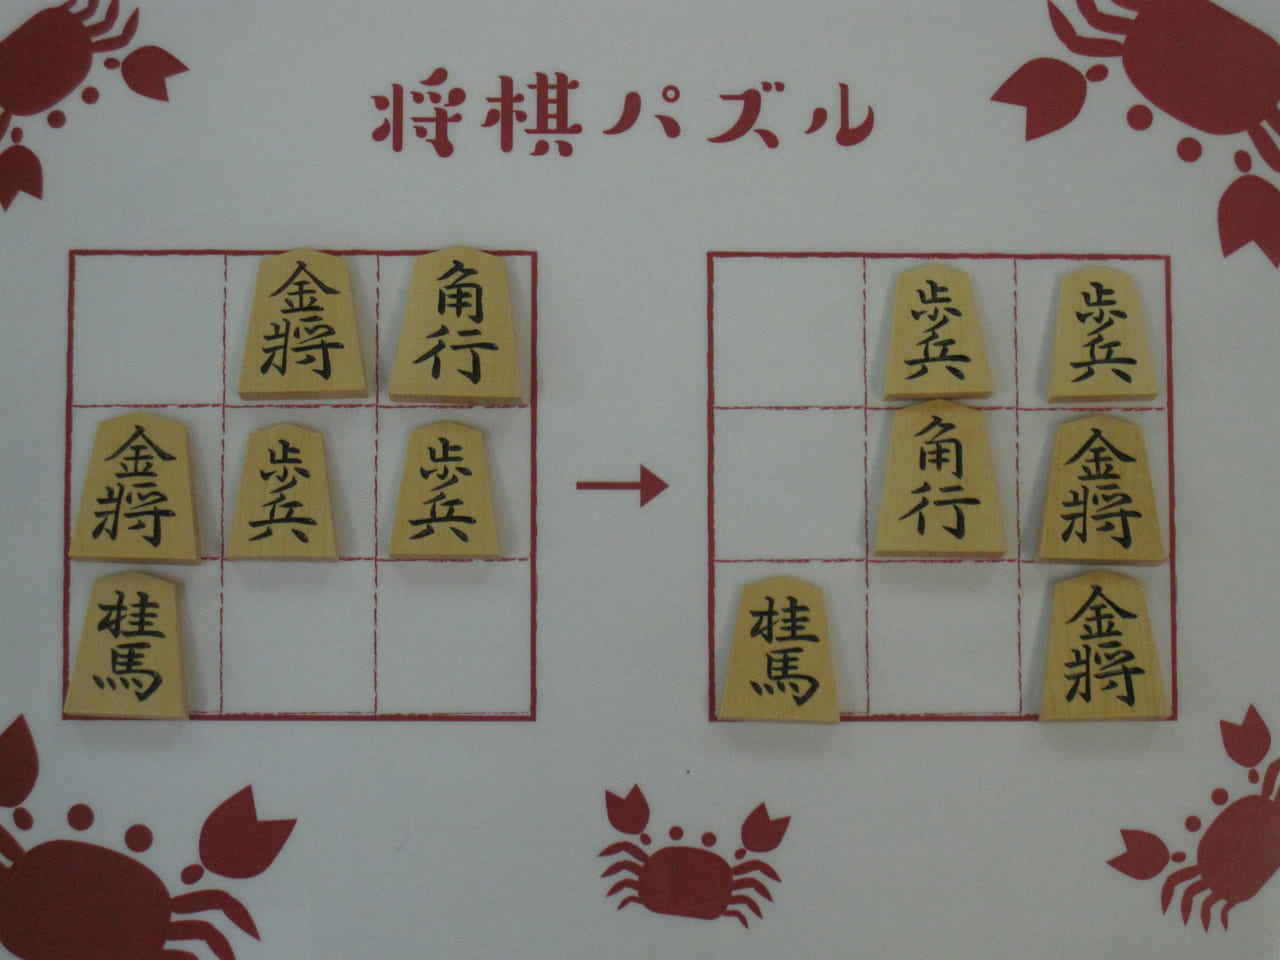 将棋パズル
金将 角行 歩兵 歩兵
金将 歩兵 歩兵 角行 金将
桂馬 桂馬 金将